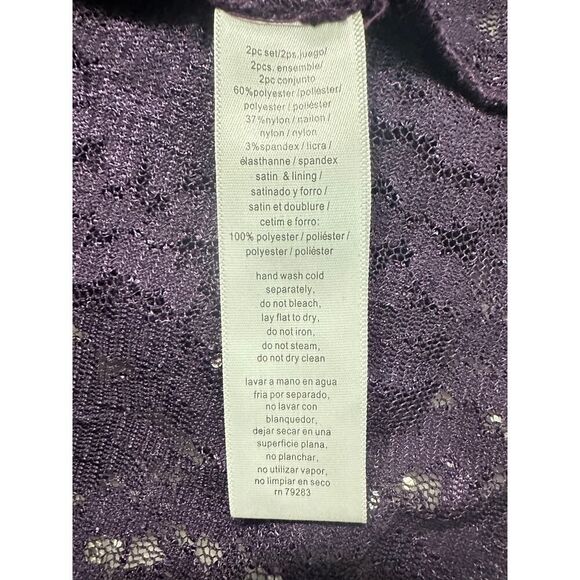 2pc set/2ps.juego/
2pcs. ensemble/
2pc conjunto
60%polyester/poliéster/
polyester / poliéster
37%nylon / nailon /
nylon / nylon
3%spandex / licra /
élasthanne / spandex
satin & lining /
satinado y forro /
satin et doublure /
cetim e forro:
100% polyester / poliéster /
polyester / poliéster
hand wash cold
separately,
do not bleach,
lay flat to dry,
do not iron,
do not steam,
do not dry clean
lavar a mano en agua
fria por separado,
no lavar con
blanquedor,
dejar secar en una
superficie plana,
no planchar,
no utilizar vapor,
no limpiar en seco
rn 79283